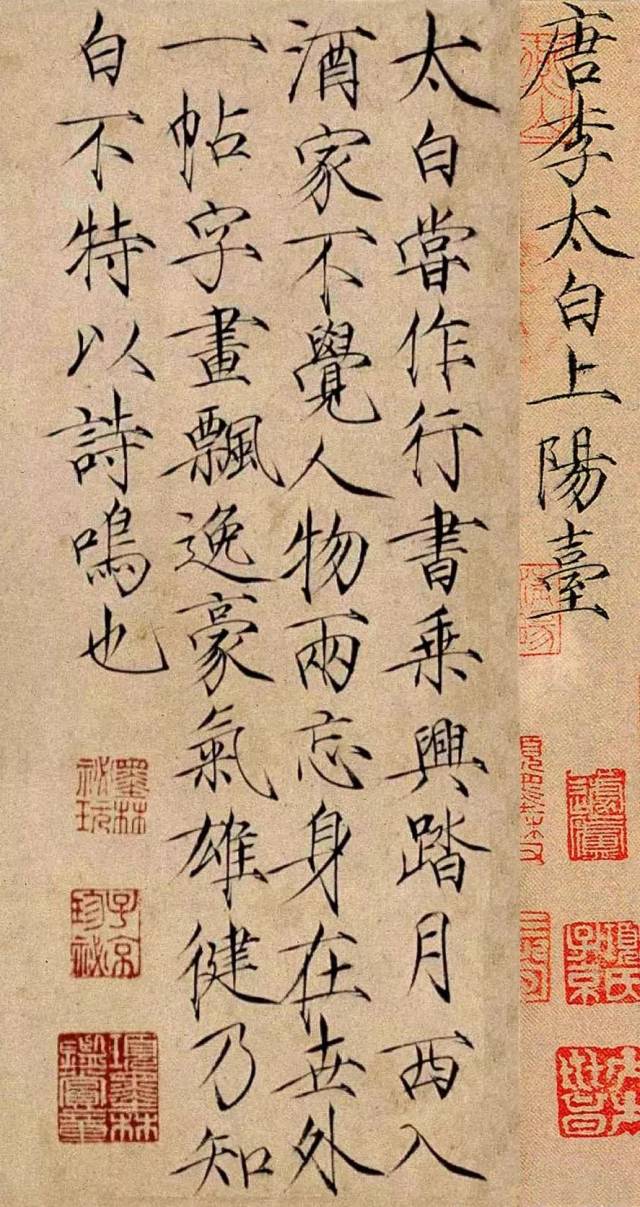 唐李太白上陽臺
太白嘗作行書乗興踏月西入
酒家不覺人物兩忘身在世外
一帖字畫飄逸豪氣雄健乃知
白不特以詩鳴也
墨林祕玩
子京珍祕
項墨林鑑賞章
項氏子京